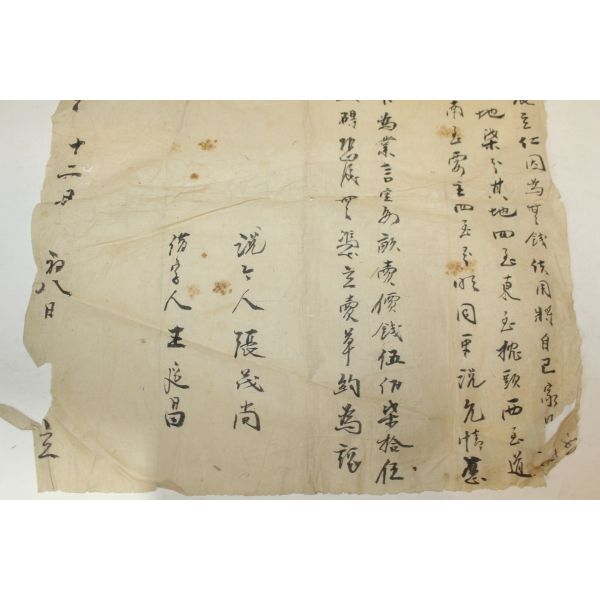 立仁因為無錢使用將自己家口
地柒分其地四至東至挖頭西至道
南至四至分明同來說允情愿
為業言定每畝賣價錢伍佰柒拾伍
碍恐後無憑立賣草約為証
說合人張茂尚
借字人王廷昌
十二月 初八日 立